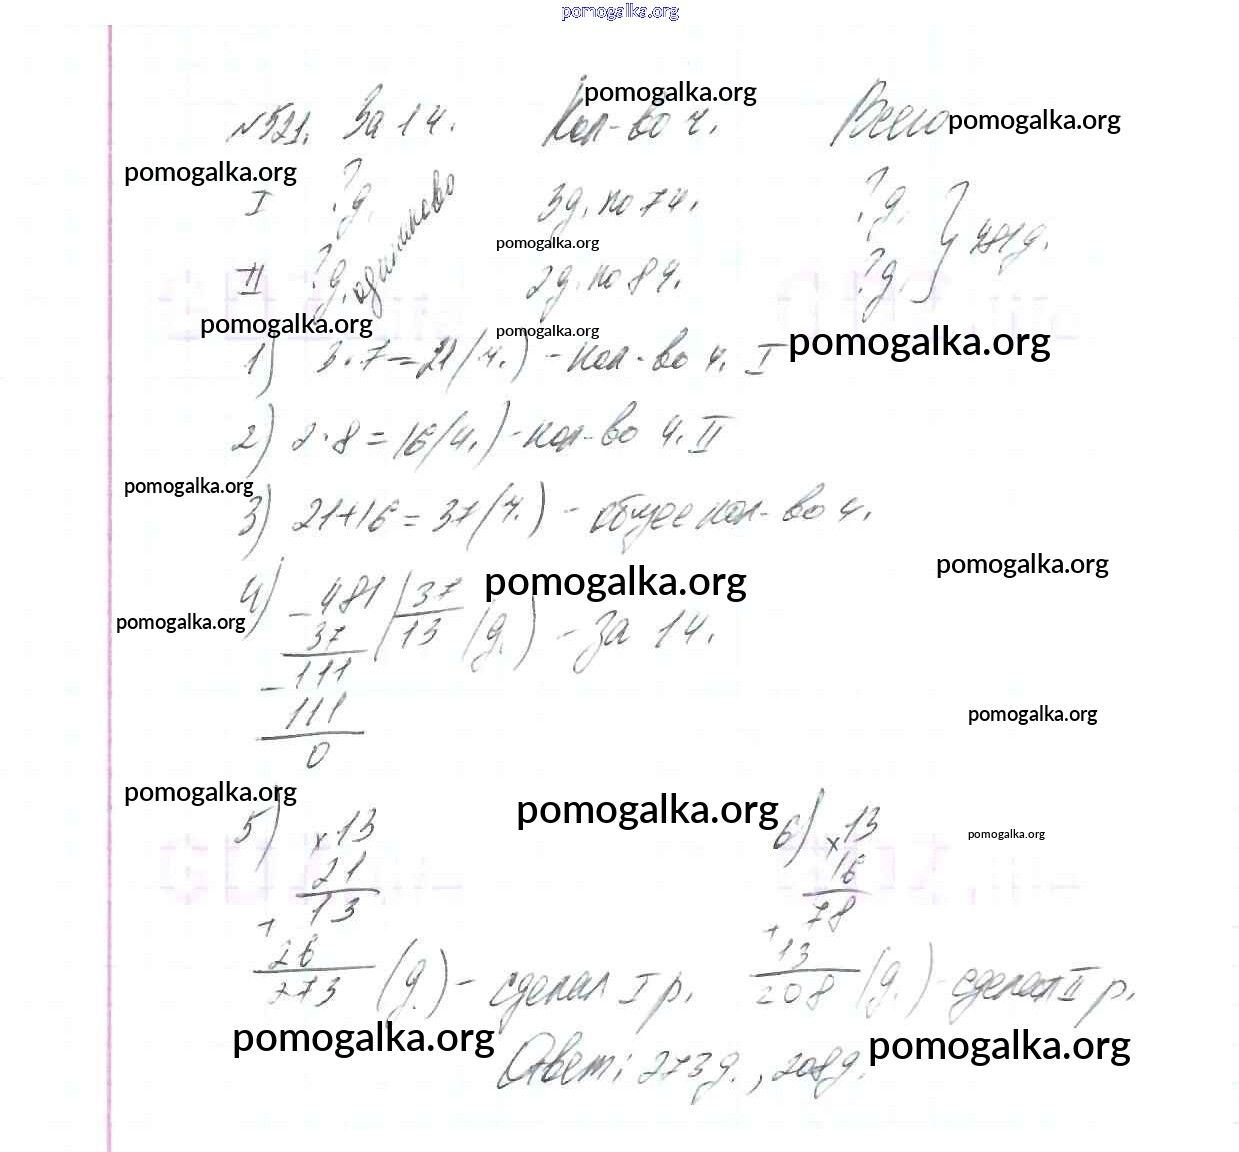 pomogalka.org
pomogalka.org
№521. За 1 ч. Кол-во ч. Всего pomogalka.org
pomogalka.org
I ?д. одинаково 3д. по 7ч. ?д. } 481д.
pomogalka.org
II ?д. 2д. по 8ч. ?д.
pomogalka.org pomogalka.org pomogalka.org
1) 3·7=21(ч.) - кол-во ч. I
2) 2·8=16(ч.) - кол-во ч. II
pomogalka.org
3) 21+16=37(ч.) - общее кол-во ч.
pomogalka.org
pomogalka.org
4) - 481 | 37
pomogalka.org
37 | 13 (д.) - за 1ч.
- 111
pomogalka.org
111
0
pomogalka.org pomogalka.org
5) x 13 6) x 13 pomogalka.org
21 16
13 78
+ +
26 13
273 (д.) - сделал I р. 208 (д.) - сделал II р.
pomogalka.org pomogalka.org
Ответ: 273д., 208д.